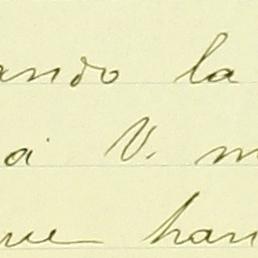 ando la
a V. m
ue han